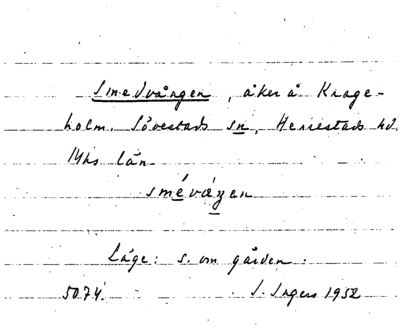 Smedvången, åker å Krage-
holm. Sövestads sn, Herrestads hd.
Mhs län
sméváŋen
Läge: s. om gården.
5074. I. Ingers 1952